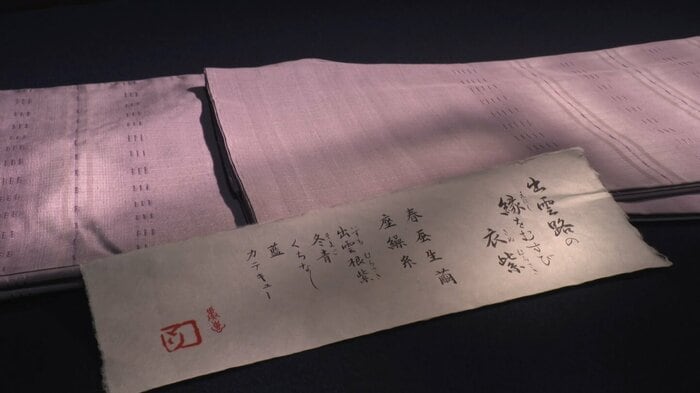 出雲路の
縁をむすび
衣紫
春蚕生繭
座繰糸
出雲根紫
冬青
くちなし
藍
カテキュー